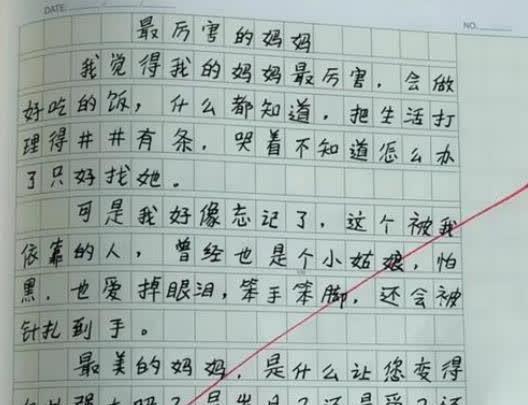 DATE.
NO.
最厉害的妈妈
我觉得我的妈妈最厉害，会做
好吃的饭，什么都知道，把生活打
理得井井有条，哭着不知道怎么办
了只好找她。
可是我好像忘记了，这个被我
依靠的人，曾经也是个小姑娘，怕
黑，也爱掉眼泪，笨手笨脚，还会被
针扎到手。
最美的妈妈，是什么让您变得